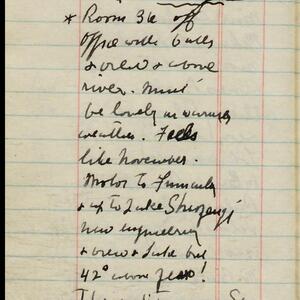 * Room 36 off
office with baths
& view & above
river. Must
be lovely in warmer
weather. Feels
like November.
Motor to Funicular
& up to Lake Shozenji
new engineering
& view & Lake but
42° above zero!